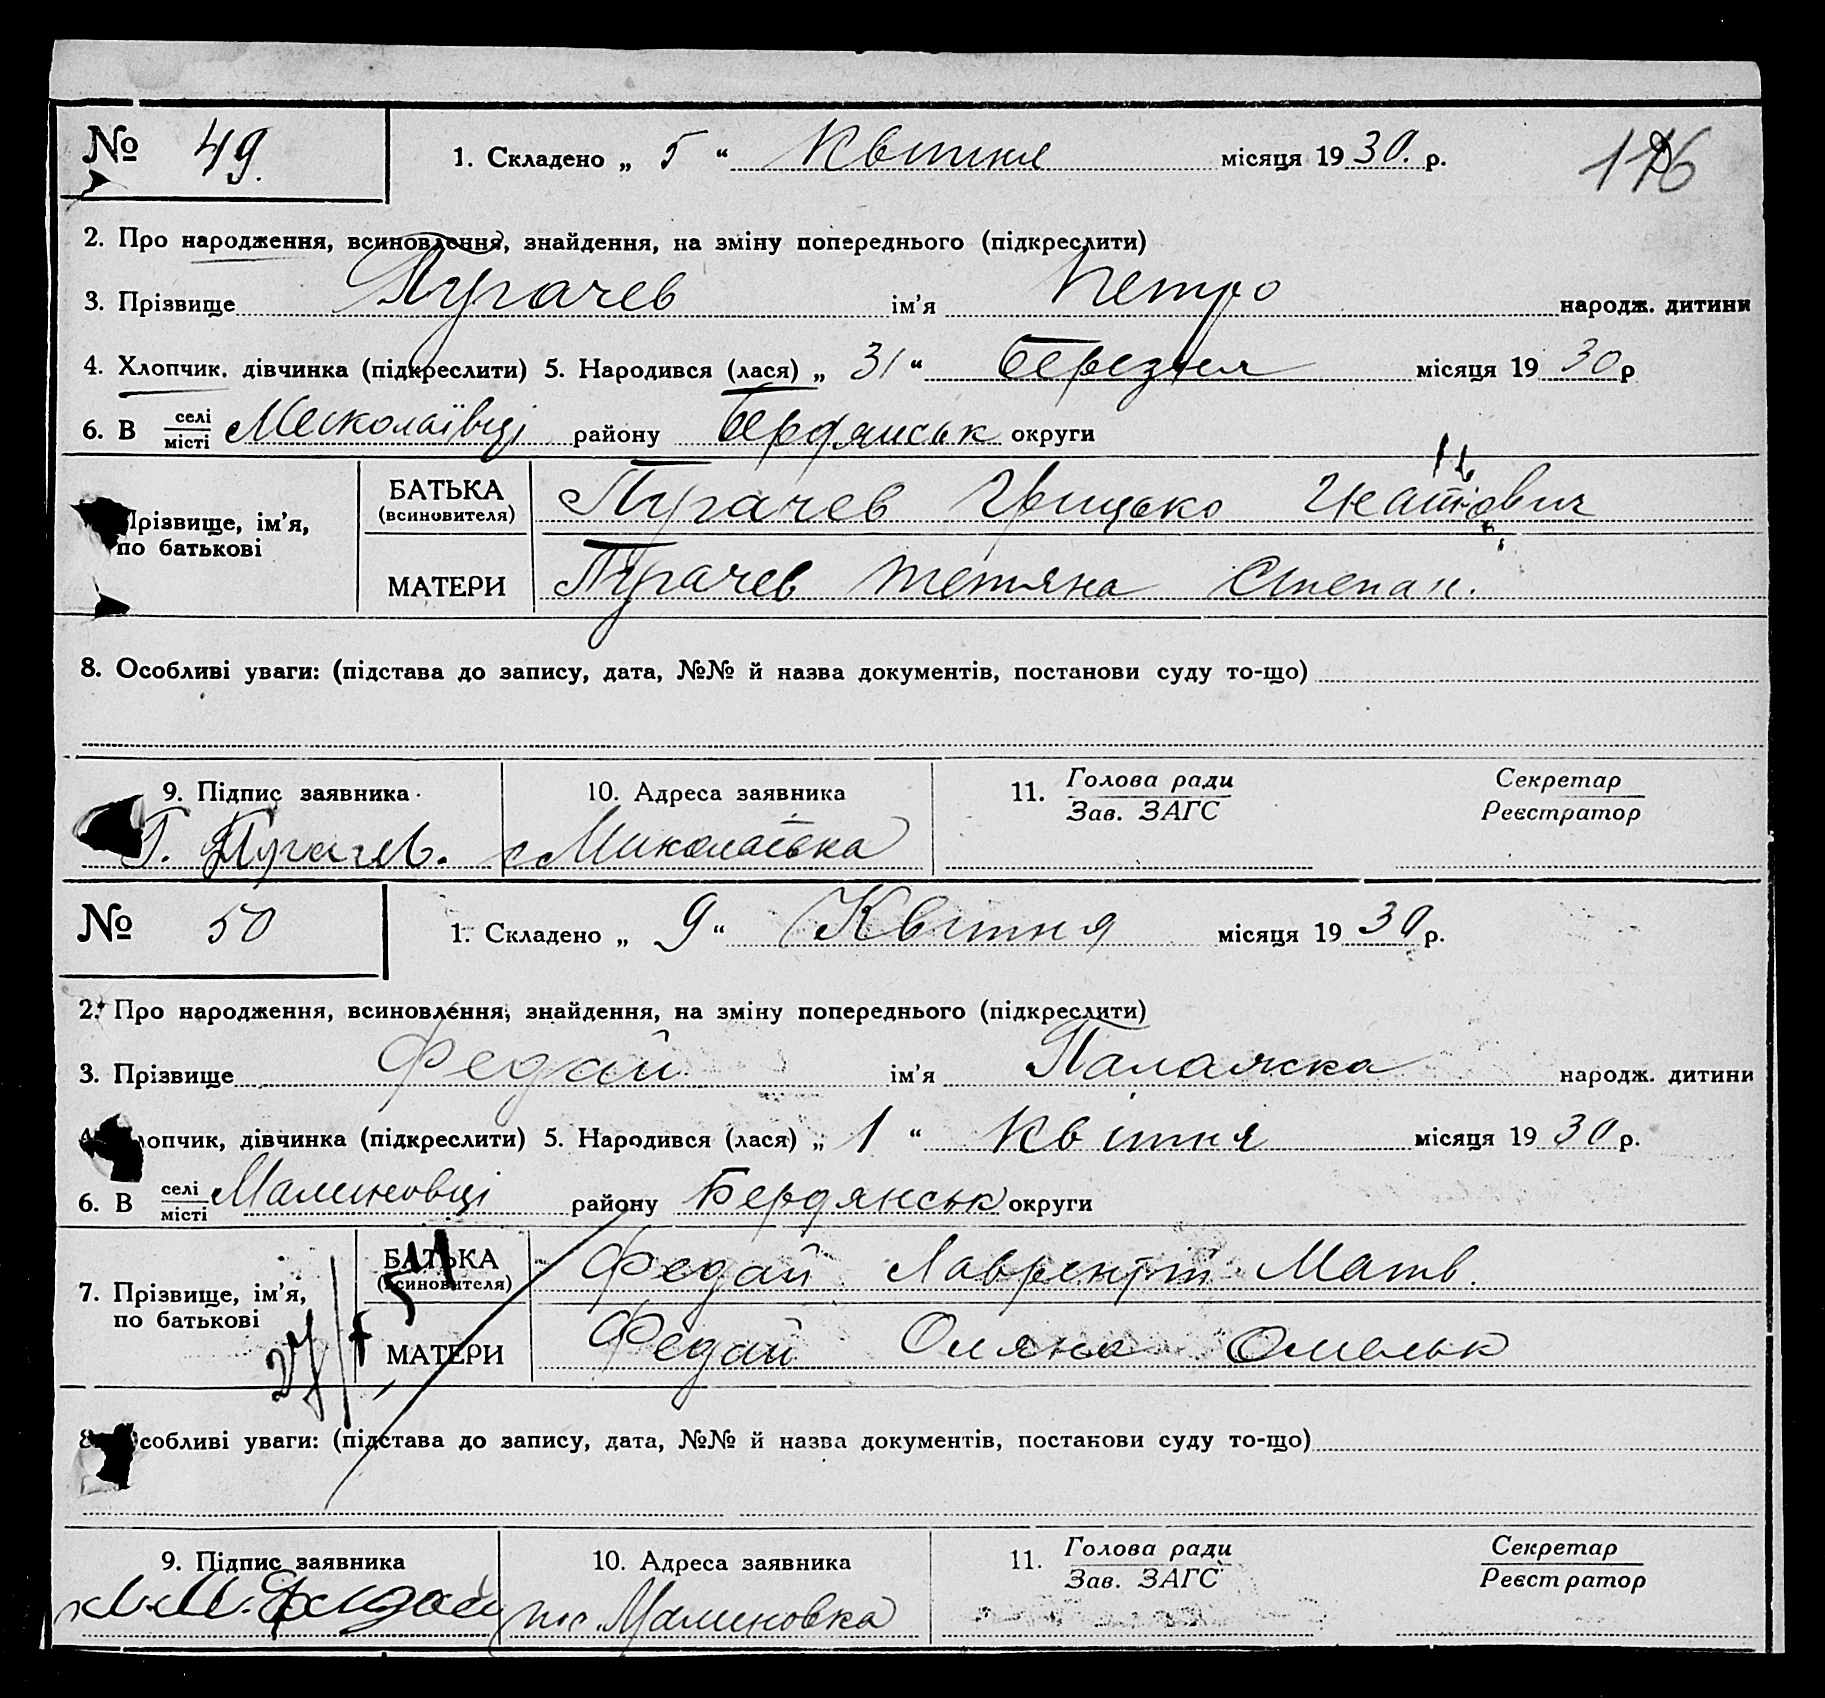 № 49. 1. Складено „ 5 “ Квітня місяця 1930. р. 116
2. Про народження, всиновлення, знайдення, на зміну попереднього (підкреслити)
3. Прізвище Пугачев ім’я Петро народж. дитини
4. Хлопчик. дівчинка (підкреслити) 5. Народився (лася) „ 31 “ березня місяця 1930 р
6. В селі місті Миколаївці району Бердянськ округи
Прізвище, ім’я, по батькові
БАТЬКА (всиновителя) Пугачев Грицько
МАТЕРИ Пугачев Тетяна Степан.
8. Особливі уваги: (підстава до запису, дата, №№ й назва документів, постанови суду то-що)
9. Підпис заявника 10. Адреса заявника 11. Голова ради Секретар
Зав. ЗАГС Реєстратор
Г. Пугачев. с Миколаївка
№ 50 1. Складено „ 9 “ Квітня місяця 1930 р.
2. Про народження, всиновлення, знайдення, на зміну попереднього (підкреслити)
3. Прізвище Федай ім’я Палажка народж. дитини
4. Хлопчик, дівчинка (підкреслити) 5. Народився (лася) „ 1 “ Квітня місяця 1930 р.
6. В селі місті Малиновці району Бердянськ округи
7. Прізвище, ім’я, по батькові
БАТЬКА (всиновителя) Федай Лаврентій Матв.
МАТЕРИ Федай Оляна Омельк
8. Особливі уваги: (підстава до запису, дата, №№ й назва документів, постанови суду то-що)
9. Підпис заявника 10. Адреса заявника 11. Голова ради Секретар
Зав. ЗАГС Реєстратор
Федай Малиновка